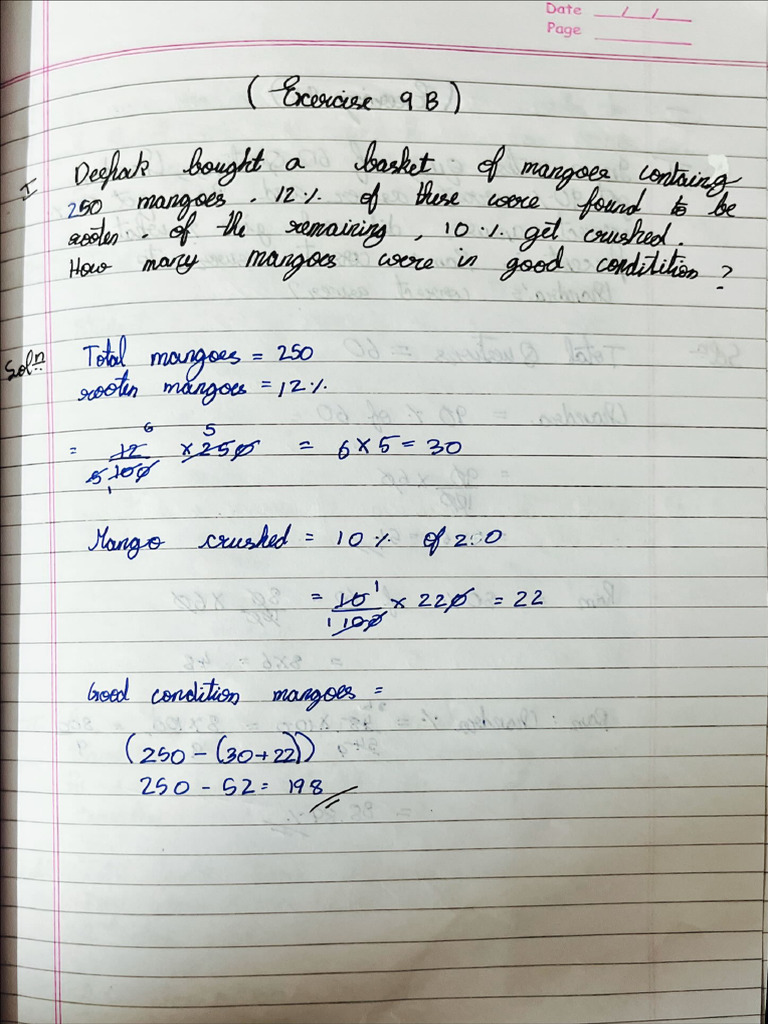 Date __/__/__
Page ________
( Exercise 9 B )
I Deepak bought a basket of mangoes containg
250 mangoes . 12 % of these were found to be
rooten . of the remaining , 10 % get crushed .
How many mangoes were in good conditition ?
Solⁿ Total mangoes = 250
rooten mangoes = 12 %
= 12/100 × 250 = 6 × 5 = 30
Mango crushed = 10 % of 220
= 10/100 × 220 = 22
Good condition mangoes =
(250 - (30 + 22))
250 - 52 = 198